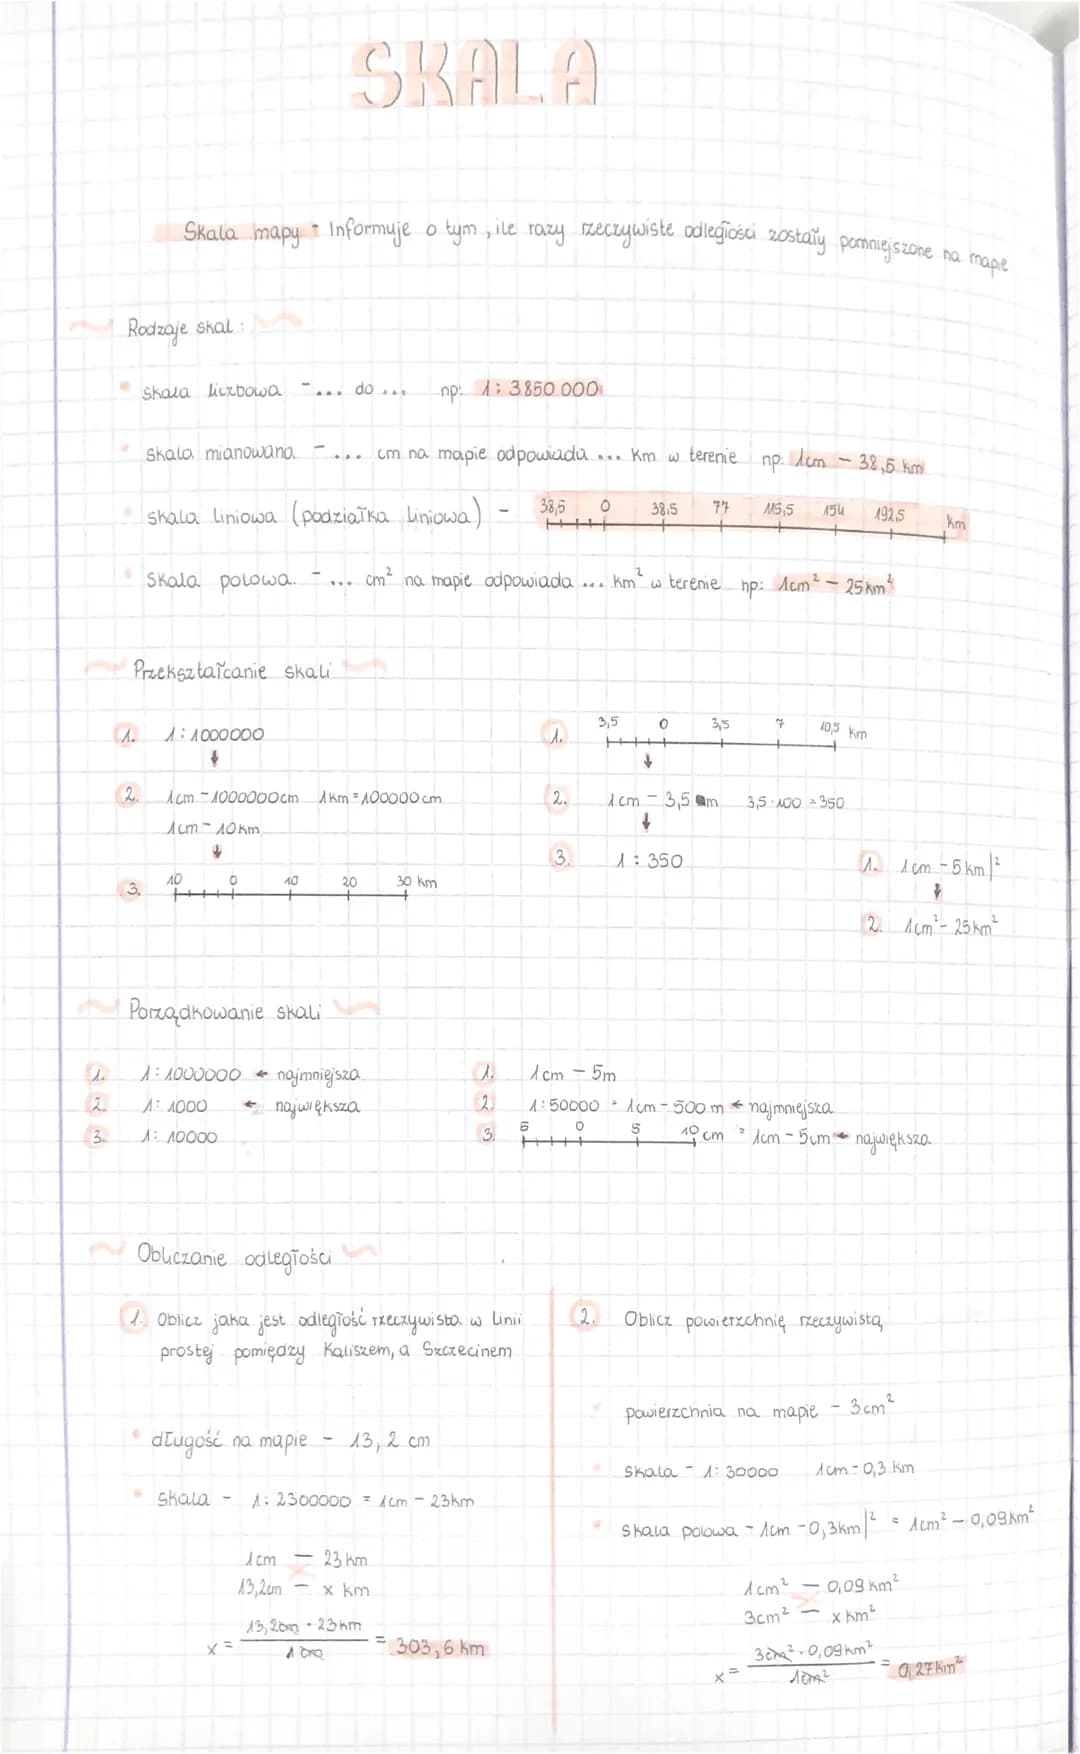 SKALA
Skala mapy - Informuje o tym, ile razy rzeczywiste odległości zostały pomniejszone na mapie
Rodzaje skal:
skala liczbowa - ... do ... np: 1: 3850 000
skala mianowana - ... cm na mapie odpowiada ... km w terenie np: 1cm - 38,5 km
skala liniowa (podziałka liniowa) - 38,5 0 38,5 77 115,5 154 192,5 km
Skala polowa - ... cm² na mapie odpowiada ... km² w terenie np: 1cm² - 25km²
Przekształcanie skali
1. 1:1000000
2. 1cm - 1000000cm 1km = 100000cm
1cm - 10km
3. 10 0 10 20 30 km
1. 3,5 0 3,5 7 10,5 km
2. 1cm - 3,5 m 3,5·100 = 350
3. 1:350
1. 1cm - 5km|²
2. 1cm² - 25km²
Porządkowanie skali
1. 1:1000000 ← najmniejsza
2. 1:1000 ← największa
3. 1:10000
1. 1cm - 5m
2. 1:50000 = 1cm - 500m ← najmniejsza
3. 5 0 5 10 cm = 1cm - 5cm ← największa
Obliczanie odległości
1. Oblicz jaka jest odległość rzeczywista w linii
prostej pomiędzy Kaliszem, a Szczecinem
długość na mapie - 13,2 cm
skala - 1: 2300000 = 1cm - 23km
1cm — 23km
13,2cm — x km
x = 13,2cm · 23km / 1cm = 303,6 km
2. Oblicz powierzchnię rzeczywistą
powierzchnia na mapie - 3cm²
skala - 1: 30000 1cm - 0,3 km
skala polowa - 1cm - 0,3km|² = 1cm² - 0,09km²
1cm² — 0,09km²
3cm² — x km²
x = 3cm² · 0,09km² / 1cm² = 0,27km²